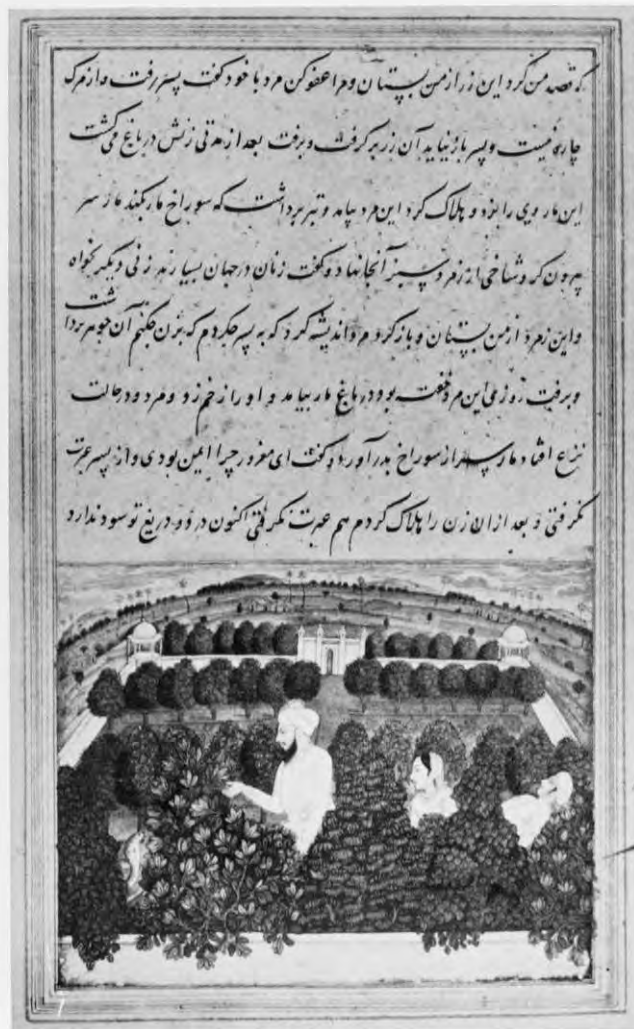 که قصد من کرد این زر از من بستان و مرا عفو کن مرد با خود گفت پسر رفت و از مرک
چاره نیست و پسر باز نیاید آن زر بر گرفت و برفت بعد از مدتی زنش در باغ می گشت
این مار وی را بزد و هلاک کرد این مرد بیامد و تبر برداشت که سوراخ مار بکند مار سر
بیرون کرد و شاخی از زمرد سبز آنجا نهاد و گفت زنان در جهان بسیارند زنی دیگر بخواه
و این زمرد از من بستان و باز گرد مرد اندیشه کرد که به پسر چکردم که بزن چکنم آن جوهر برداشت
و برفت روزی این مرد خفته بود در باغ مار بیامد و او را زخم زد و مرد در حالت
نزع افتاد مار سر از سوراخ بدر آورد و گفت ای مغرور چرا ایمن بودی و از پسر عبرت
نگرفتی و بعد از ان زن را هلاک کردم هم عبرت نگرفتی اکنون درد و دریغ تو سود ندارد